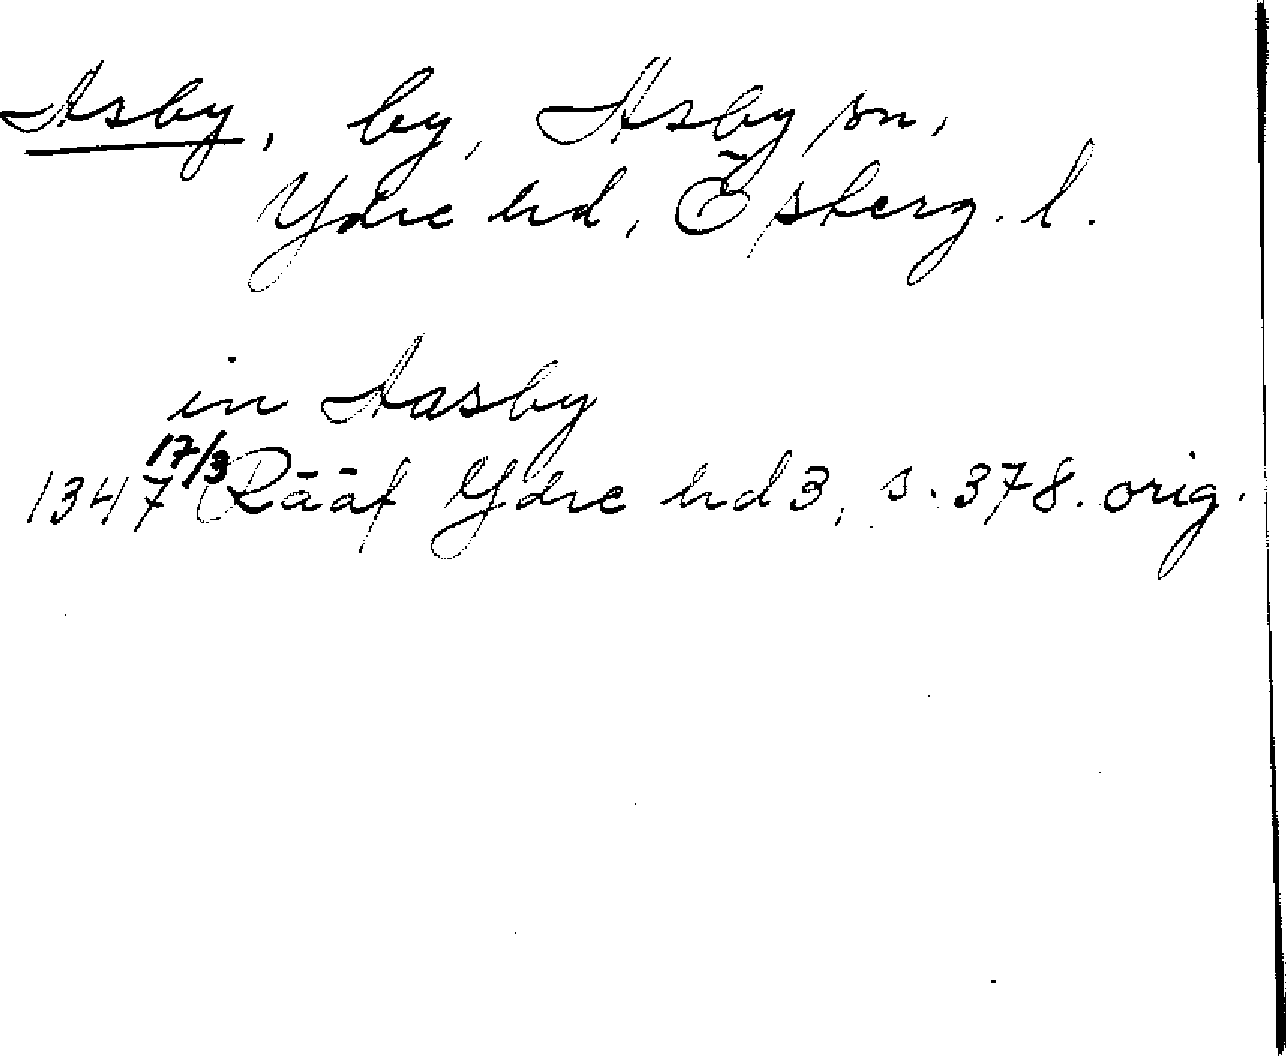 Asby, by, Asby sn,
Ydre hd, Östergl.
in Aasby
1347 17/3 Rääf Ydre hd 3, s. 378. orig.